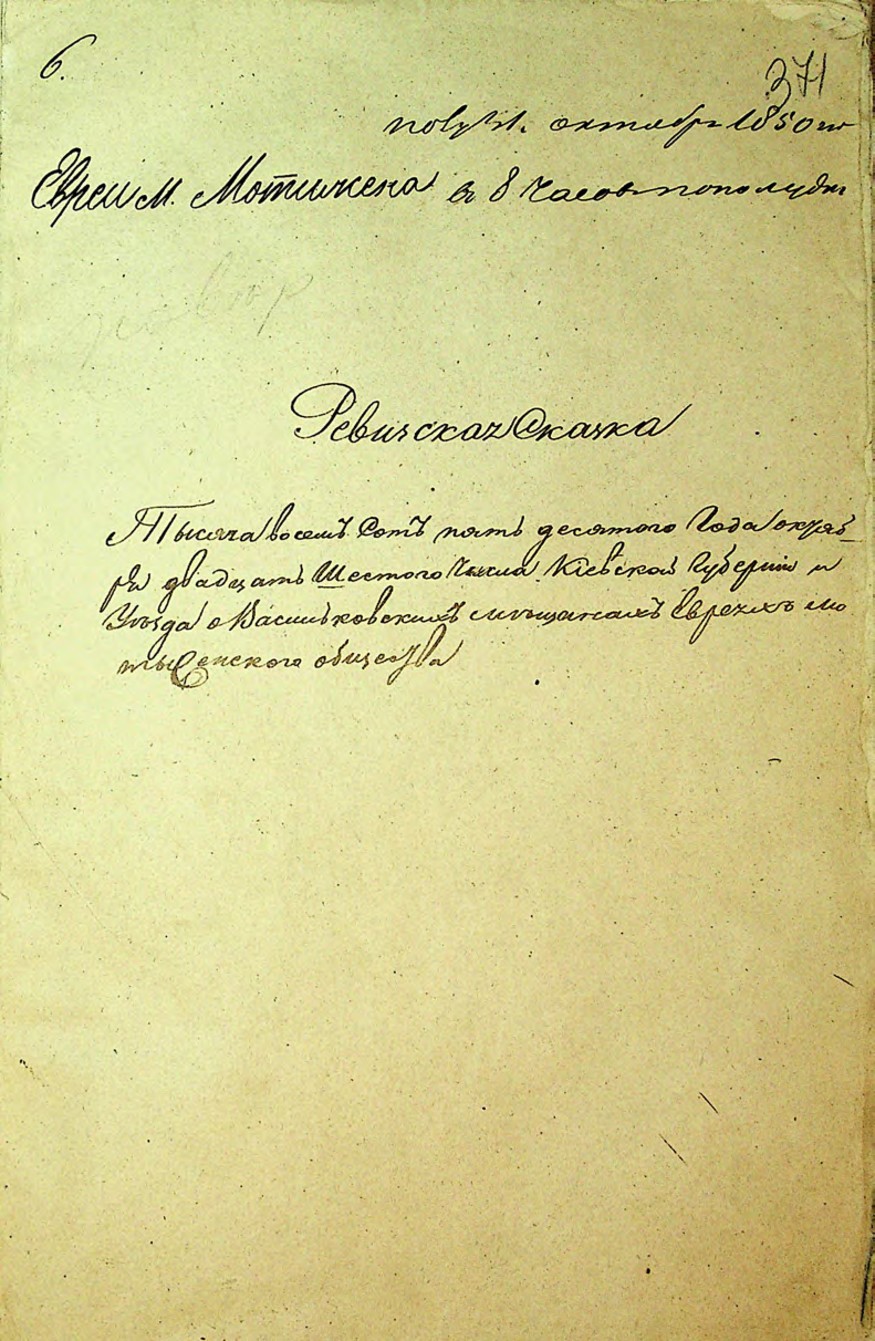 6.
371
октября 1850 го
Евреи м. Мотижена в 8 часов пополудни
Ревизская Сказка
Тысяча восемъ Сотъ пять десятого Года октяб-
ря двадцать Шестого Числа Кіевской Губерніи и
Уѣзда о Васильковскихъ мѣщанахъ Евреяхъ мо
тыженского общества